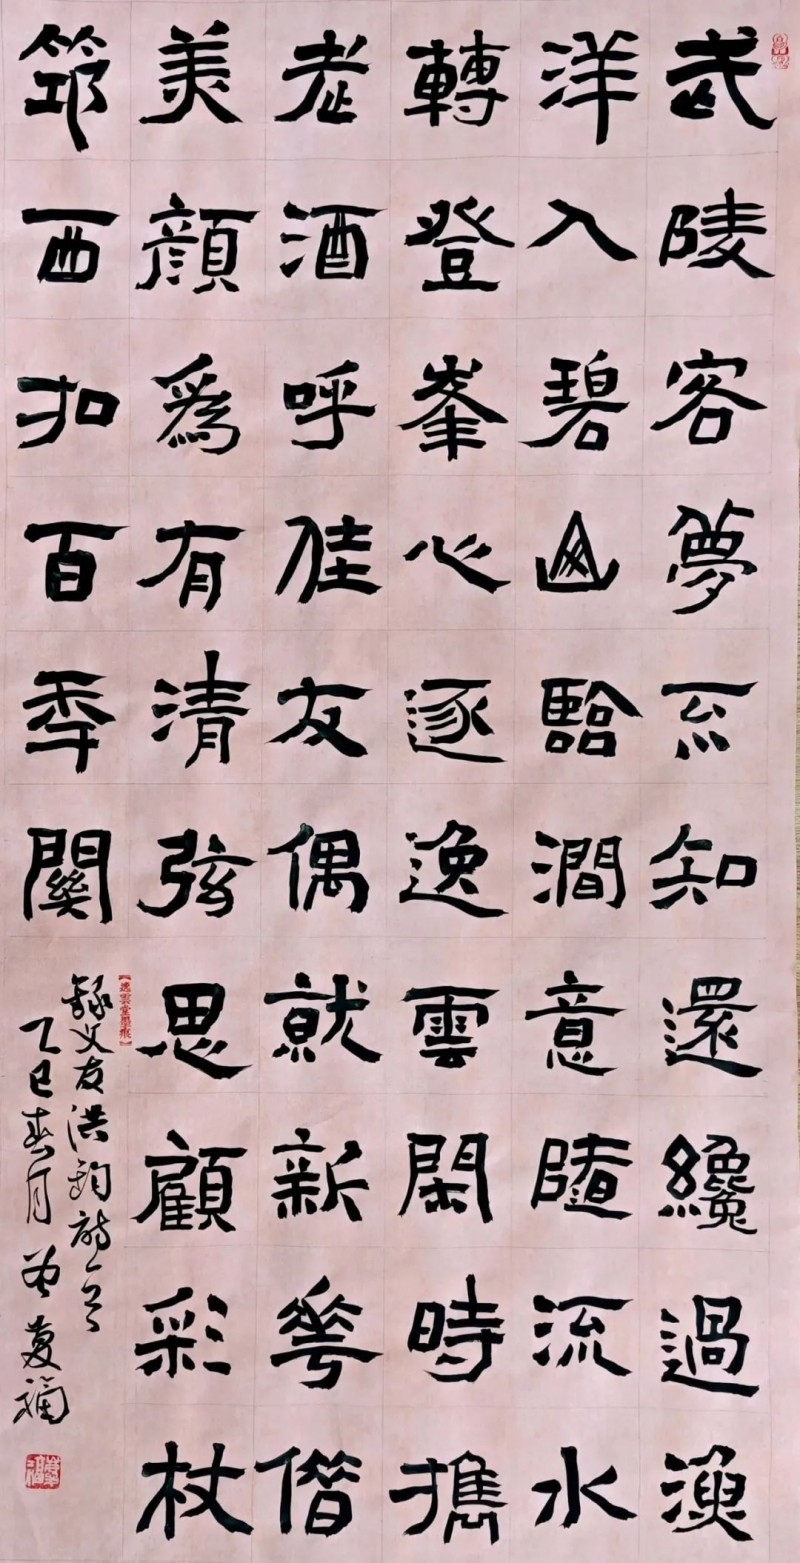 武陵客夢不知還纔過漁
洋入碧山臨澗意隨流水
轉登峯心逐逸雲閑時攜
老酒呼佳友偶就新華偕
美顏爲有清弦思顧彩杖
筇西扣百年關
錄文友洪鈞詩一首
乙巳春月